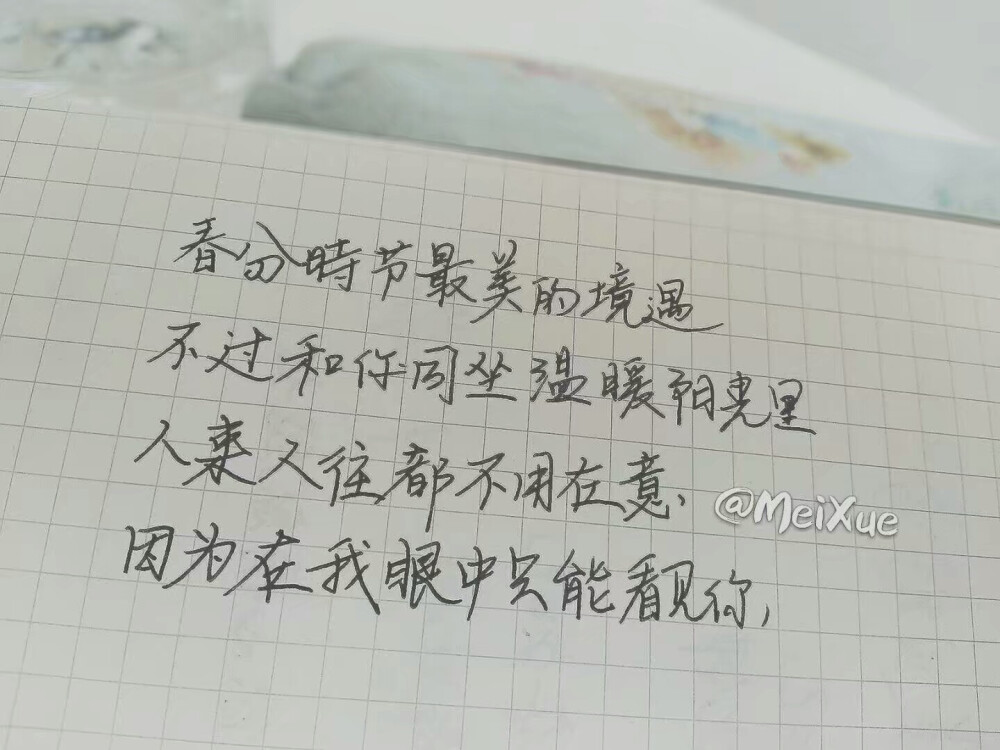 春分時节最美的境遇
不过和你同坐温暖阳光里
人来人往都不用在意、
@MeiXue
因为在我眼中只能看见你，